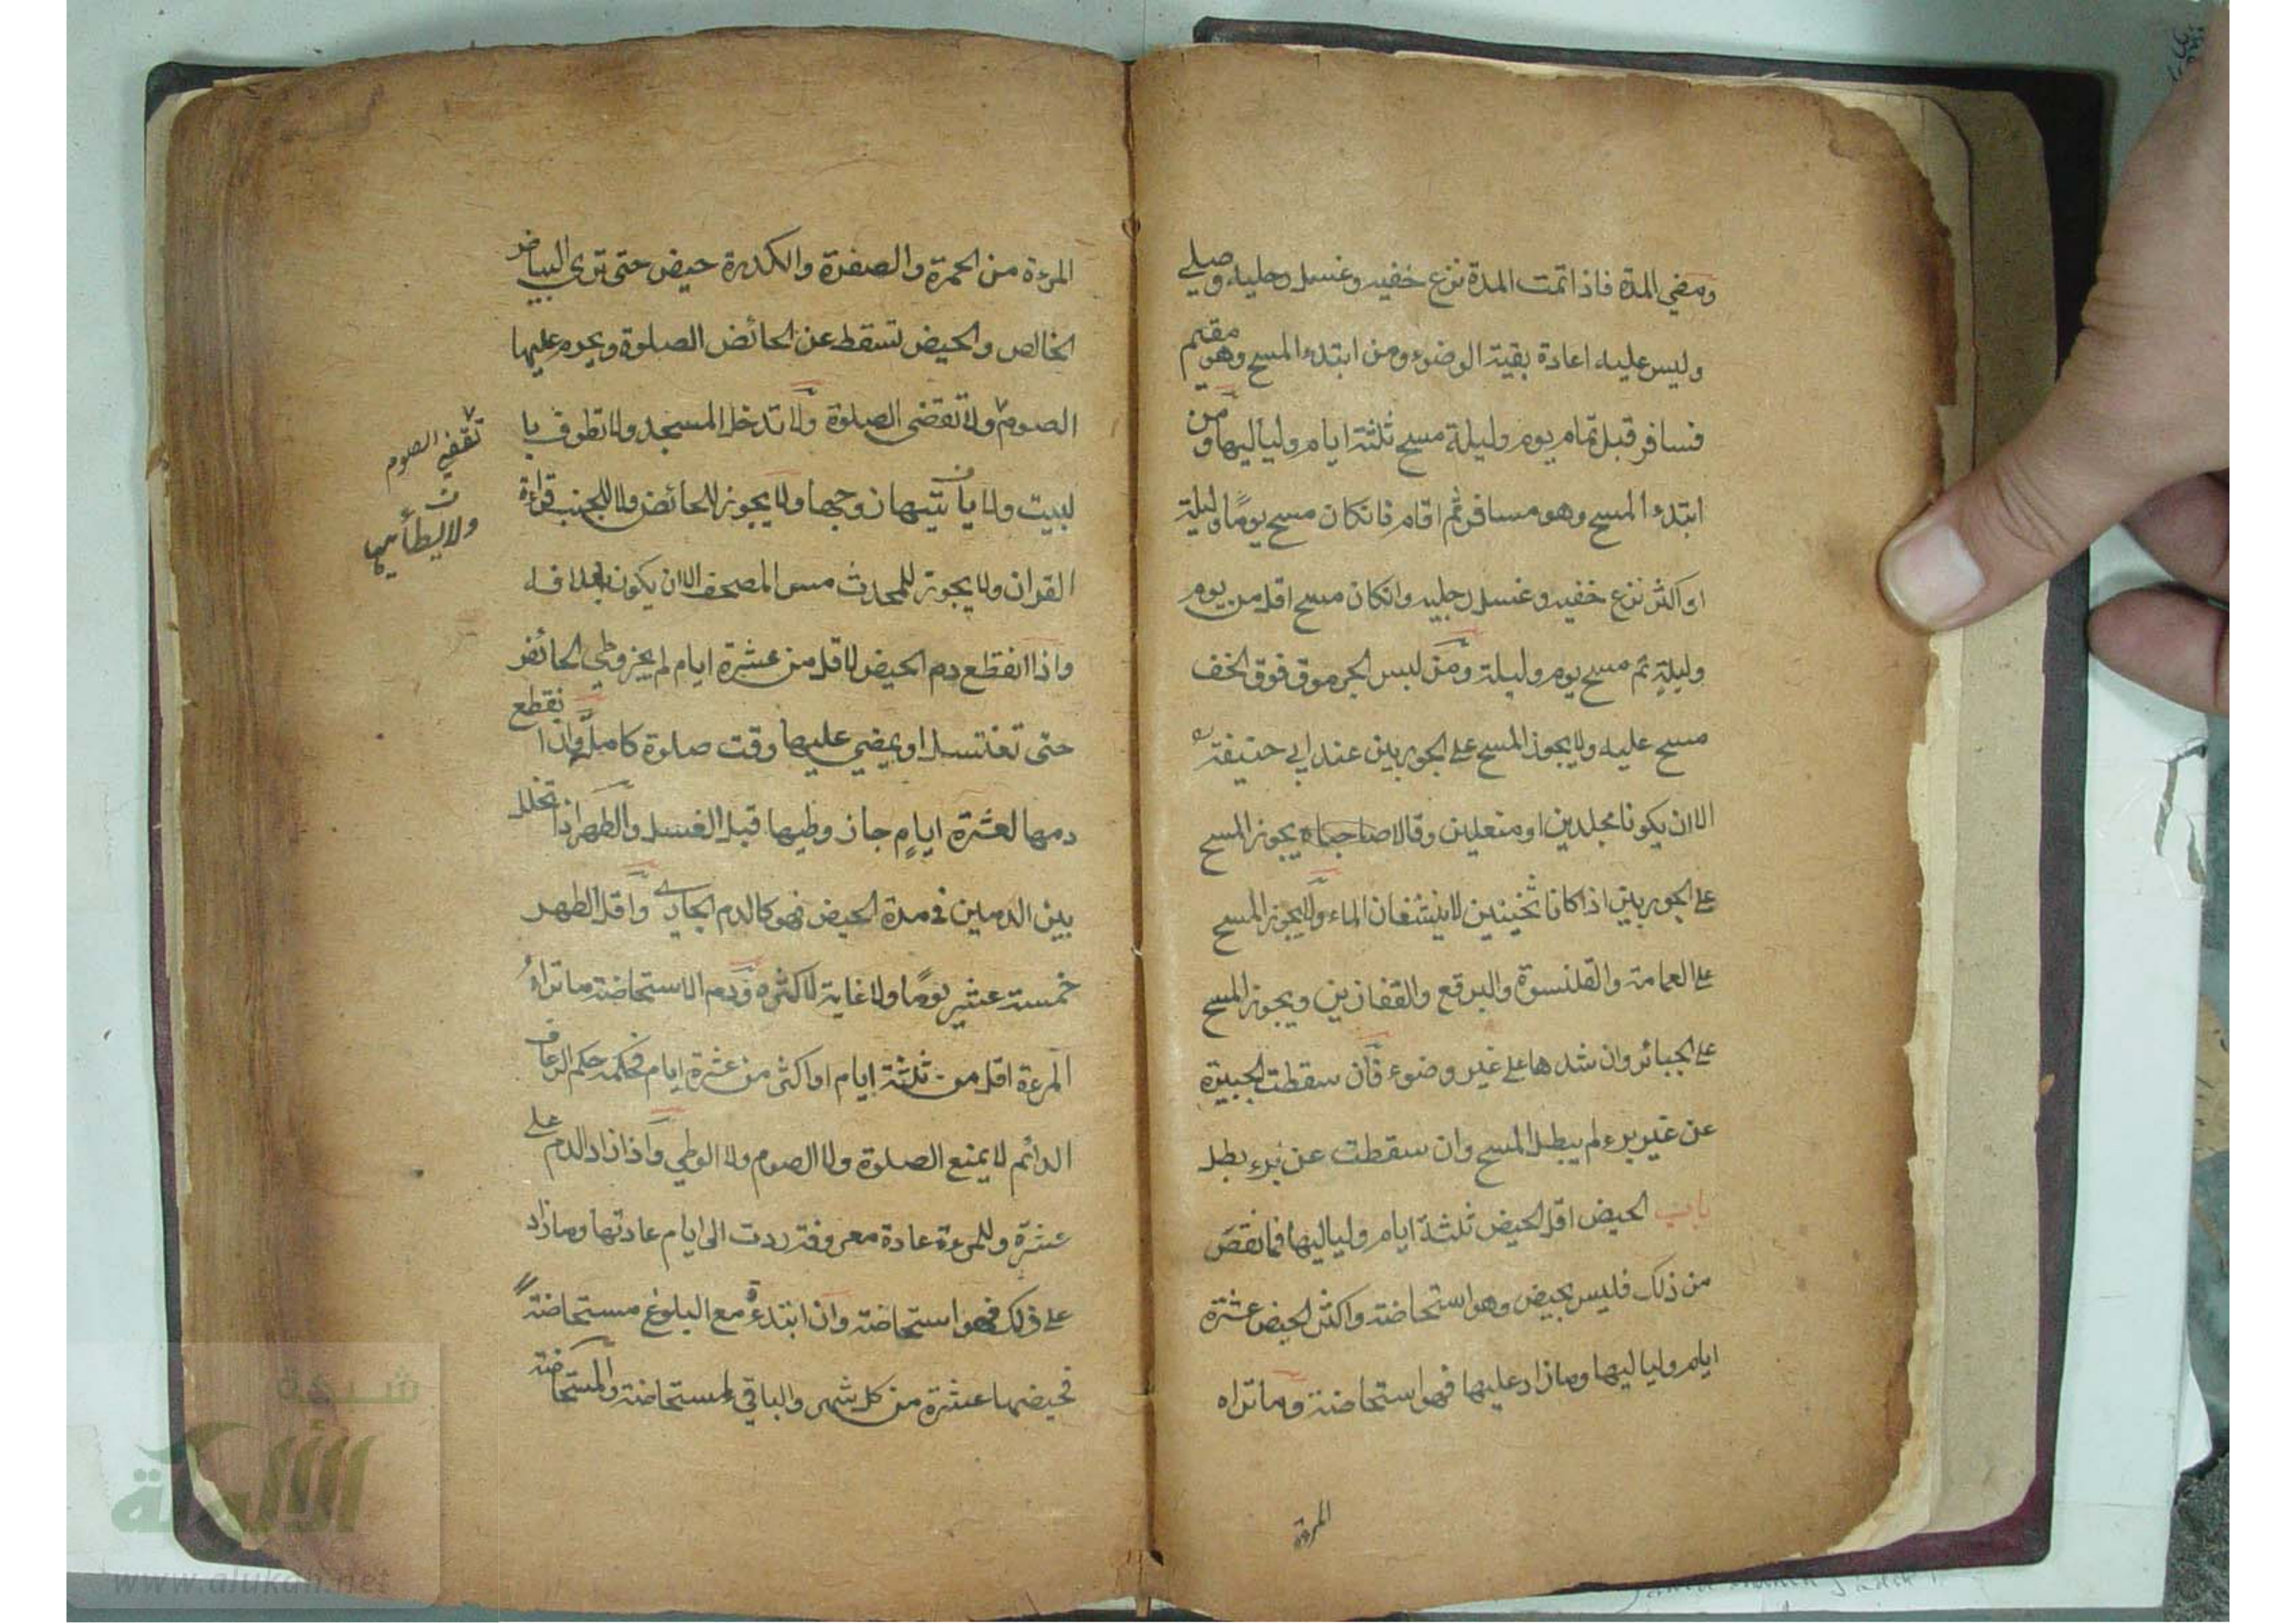 ومضي المدة فاذا تمت المدة نزع خفيه وغسل رجليه وصلي
وليس عليه اعادة بقية الوضوء ومن ابتدء المسح وهو مقيم
فسافر قبل تمام يوم وليلة مسح ثلثة ايام ولياليها ومن
ابتدء المسح وهو مسافر ثم اقام فانكان مسح يومًا وليلة
او اكثر نزع خفيه وغسل رجليه وانكان مسح اقل من يوم
وليلةٍ تم مسح يوم وليلة ومن لبس الجرموق فوق الخف
مسح عليه ولا يجوز المسح على الجوربين عند ابي حنيفة
الا ان يكونا مجلدين او منعلين وقالا صاحباه يجوز المسح
على الجوربين اذا كانا ثخينين لا ينشفان الماء ولا يجوز المسح
على العمامة والقلنسوة والبرقع والقفازين ويجوز المسح
على الجبائر وان شدها على غير وضوء فان سقطت الجبيرة
عن غير برء لم يبطل المسح وان سقطت عن برء بطل
باب الحيض اقل الحيض ثلثة ايام ولياليها فما نقص
من ذلك فليس بحيض وهو استحاضة واكثر الحيض عشرة
ايام ولياليها وما زاد عليها فهو استحاضة وما تراه
المرءة
المرءة من الحمرة والصفرة والكدرة حيض حتى ترى البياض
الخالص والحيض تسقط عن الحائض الصلوة ويحرم عليها
الصوم ولا تقضى الصلوة ولا تدخل المسجد ولا تطوف با
لبيت ولا يأتيها زوجها ولا يجوز للحائض ولا للجنب قراءة
القران ولا يجوز للمحدث مس المصحف الا ان يكون بغلافه
واذا انقطع دم الحيض لاقل من عشرة ايام لم يجز وطي الحائض
حتى تغتسل او يمضي عليها وقت صلوة كاملة واذا انقطع
دمها لعشرة ايامٍ جاز وطيها قبل الغسل والطهر اذا تخلل
بين الدمين في مدة الحيض فهو كالدم الجاري واقل الطهر
خمسة عشر يومًا ولا غاية لاكثره ودم الاستحاضة ما تراه
المرءة اقل من ثلثة ايام او اكثر من عشرة ايام فحكمه حكم الرعاف
الدائم لا يمنع الصلوة ولا الصوم ولا الوطي واذا زاد الدم على
عشرة وللمرءة عادة معروفة ردت الى ايام عادتها وما زاد
على ذلك فهو استحاضة وان ابتدءة مع البلوغ مستحاضة
فحيضها عشرة من كل شهر والباقي استحاضة والمستحاضة
تقضي الصوم
شبكة
الألوكة
www.alukah.net